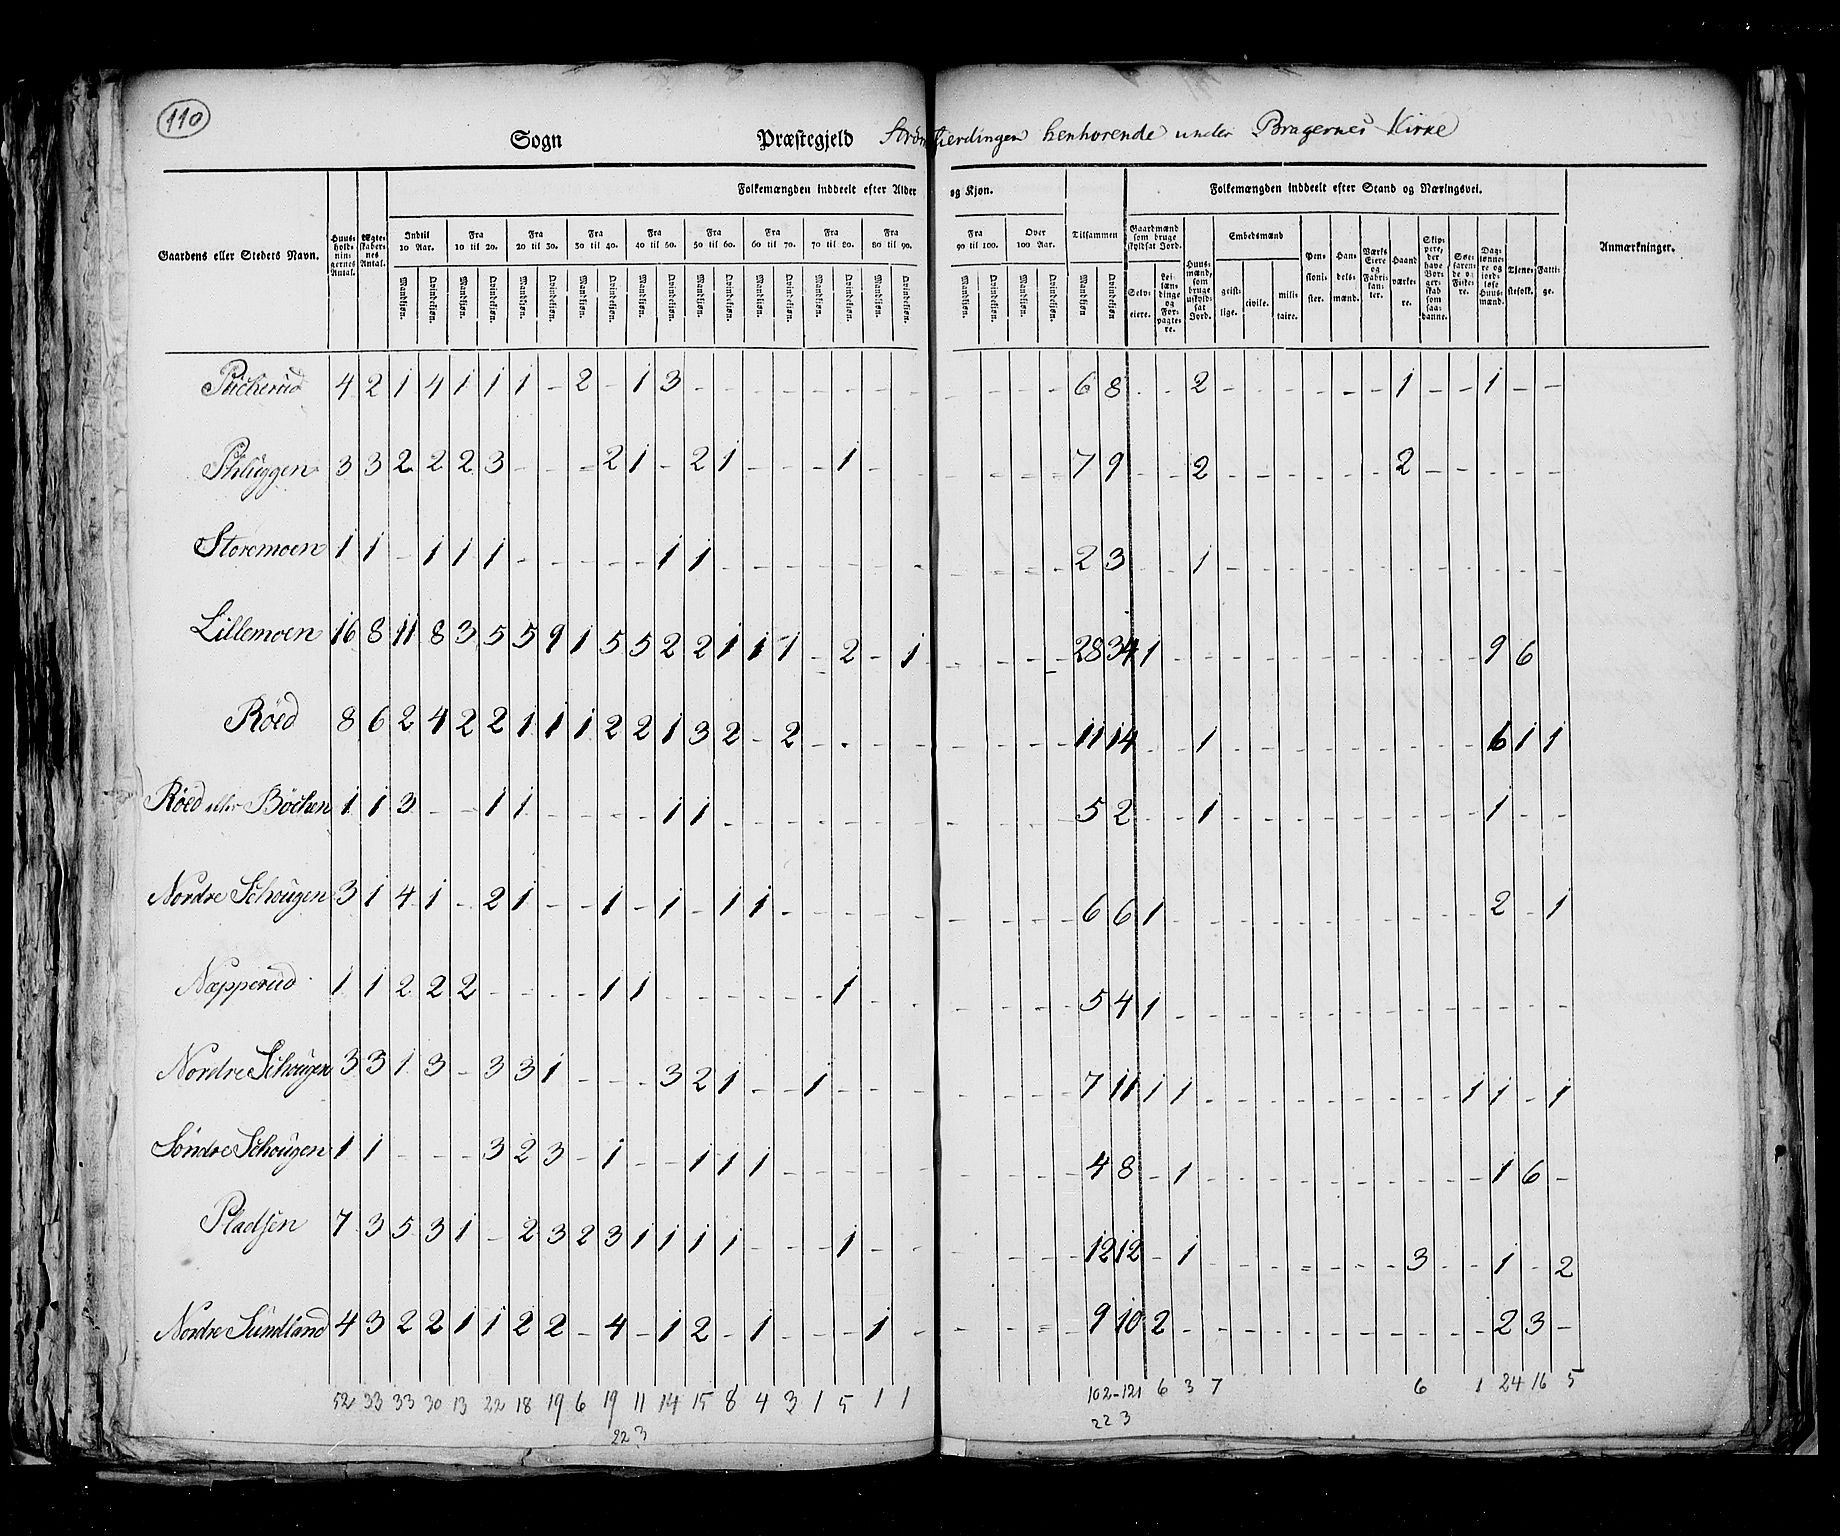 110
Sogn Præstegjeld Strømsfierdingen henhørende under Bragernes Kirke
Gaardens eller Steders Navn. Huus-hold-nin-gernes Antal. Ægte-skaber-nes Antal. Folkemængden inddeelt efter Alder og Kjøn. Tilsammen Folkemængden inddeelt efter Stand og Næringsvei. Anmærkninger.
Indtil 10 Aar. Fra 10 til 20. Fra 20 til 30. Fra 30 til 40. Fra 40 til 50. Fra 50 til 60. Fra 60 til 70. Fra 70 til 80. Fra 80 til 90. Fra 90 til 100. Over 100 Aar.
Gaardmænd som bruge skyldsat Jord. Huus-mænd, som bruge uskyld-sat Jord. Embedsmænd Pen-sioni-ster. Han-dels-mænd. Værks Eiere og Fabri-kan-ter. Haand værke-re. Skip-pere, der have Bor-ger-skab som saa-danne. Søe-faren-de og Fiske-re. Dag-lønne-re og jord-løse Huus-mænd. Tjene-stefolk. Fatti-ge.
Mandkjøn. Qvindekjøn. Mandkjøn. Qvindekjøn. Mandkjøn. Qvindekjøn. Mandkjøn. Qvindekjøn. Mandkjøn. Qvindekjøn. Mandkjøn. Qvindekjøn. Mandkjøn. Qvindekjøn. Mandkjøn. Qvindekjøn. Mandkjøn. Qvindekjøn. Mandkjøn. Qvindekjøn. Mandkjøn. Qvindekjøn. Mandkjøn. Qvindekjøn. Selv-eiere. Lei-læn-dinge og For-pagte-re. geist-lige. civile. mili-taire.
4 2 1 4 1 1 1 - 2 - 1 3 - - - - - - - - - - - - 6 8 - - 2 - - - - - - 1 - - 1 - -
3 3 2 2 2 3 - - - 2 1 - 2 1 - - - 1 - - - - - - 7 9 - - 2 - - - - - - 2 - - - - -
Storemoen 1 1 - 1 1 1 - - - - - 1 1 - - - - - - - - - - - 2 3 - - 1 - - - - - - - - - - - -
Lillemoen 16 8 11 8 3 5 5 9 1 5 5 2 2 1 1 1 - 2 - 1 - - - - 28 34 1 - - - - - - - - - - - 9 6
Röed 8 6 2 4 2 2 1 1 1 2 2 1 3 2 - 2 - - - - - - - - 11 14 - - 1 - - - - - - - - - 6 1 1
Röed eller Böchen 1 1 3 - - 1 1 - - - - 1 1 - - - - - - - - - - - 5 2 - - 1 - - - - - - - - - 1 - -
Nordre Schougen 3 1 4 1 - 2 1 - - 1 - 1 - 1 1 - - - - - - - - - 6 6 1 - - - - - - - - - - - 2 - 1
Næpperud 1 1 2 2 2 - - - - 1 1 - - - - - - 1 - - - - - - 5 4 1 - - - - - - - - - - - - - -
Nordre Schougen 3 3 1 3 - 3 3 1 - - - 3 2 1 - - 1 - - - - - - - 7 11 1 1 - - - - - - - - - 1 1 - 1
Söndre Schougen 1 1 - - - 3 2 3 - 1 - - 1 1 1 - - - - - - - - - 4 8 - 1 - - - - - - - - - - 1 6 -
Pladsen 7 3 5 3 1 - 2 3 2 3 1 1 1 1 - - - 1 - - - - - - 12 12 - 1 - - - - - - - 3 - - 1 - 2
Nordre Sundland 4 3 2 2 1 1 2 2 - 4 - 1 2 - 1 - - - 1 - - - - - 9 10 2 - - - - - - - - - - - 2 3 -
52 33 33 30 13 22 18 19 6 19 11 14 15 8 4 3 1 5 1 1 102-121 6 3 7 6 1 24 16 5
223 223